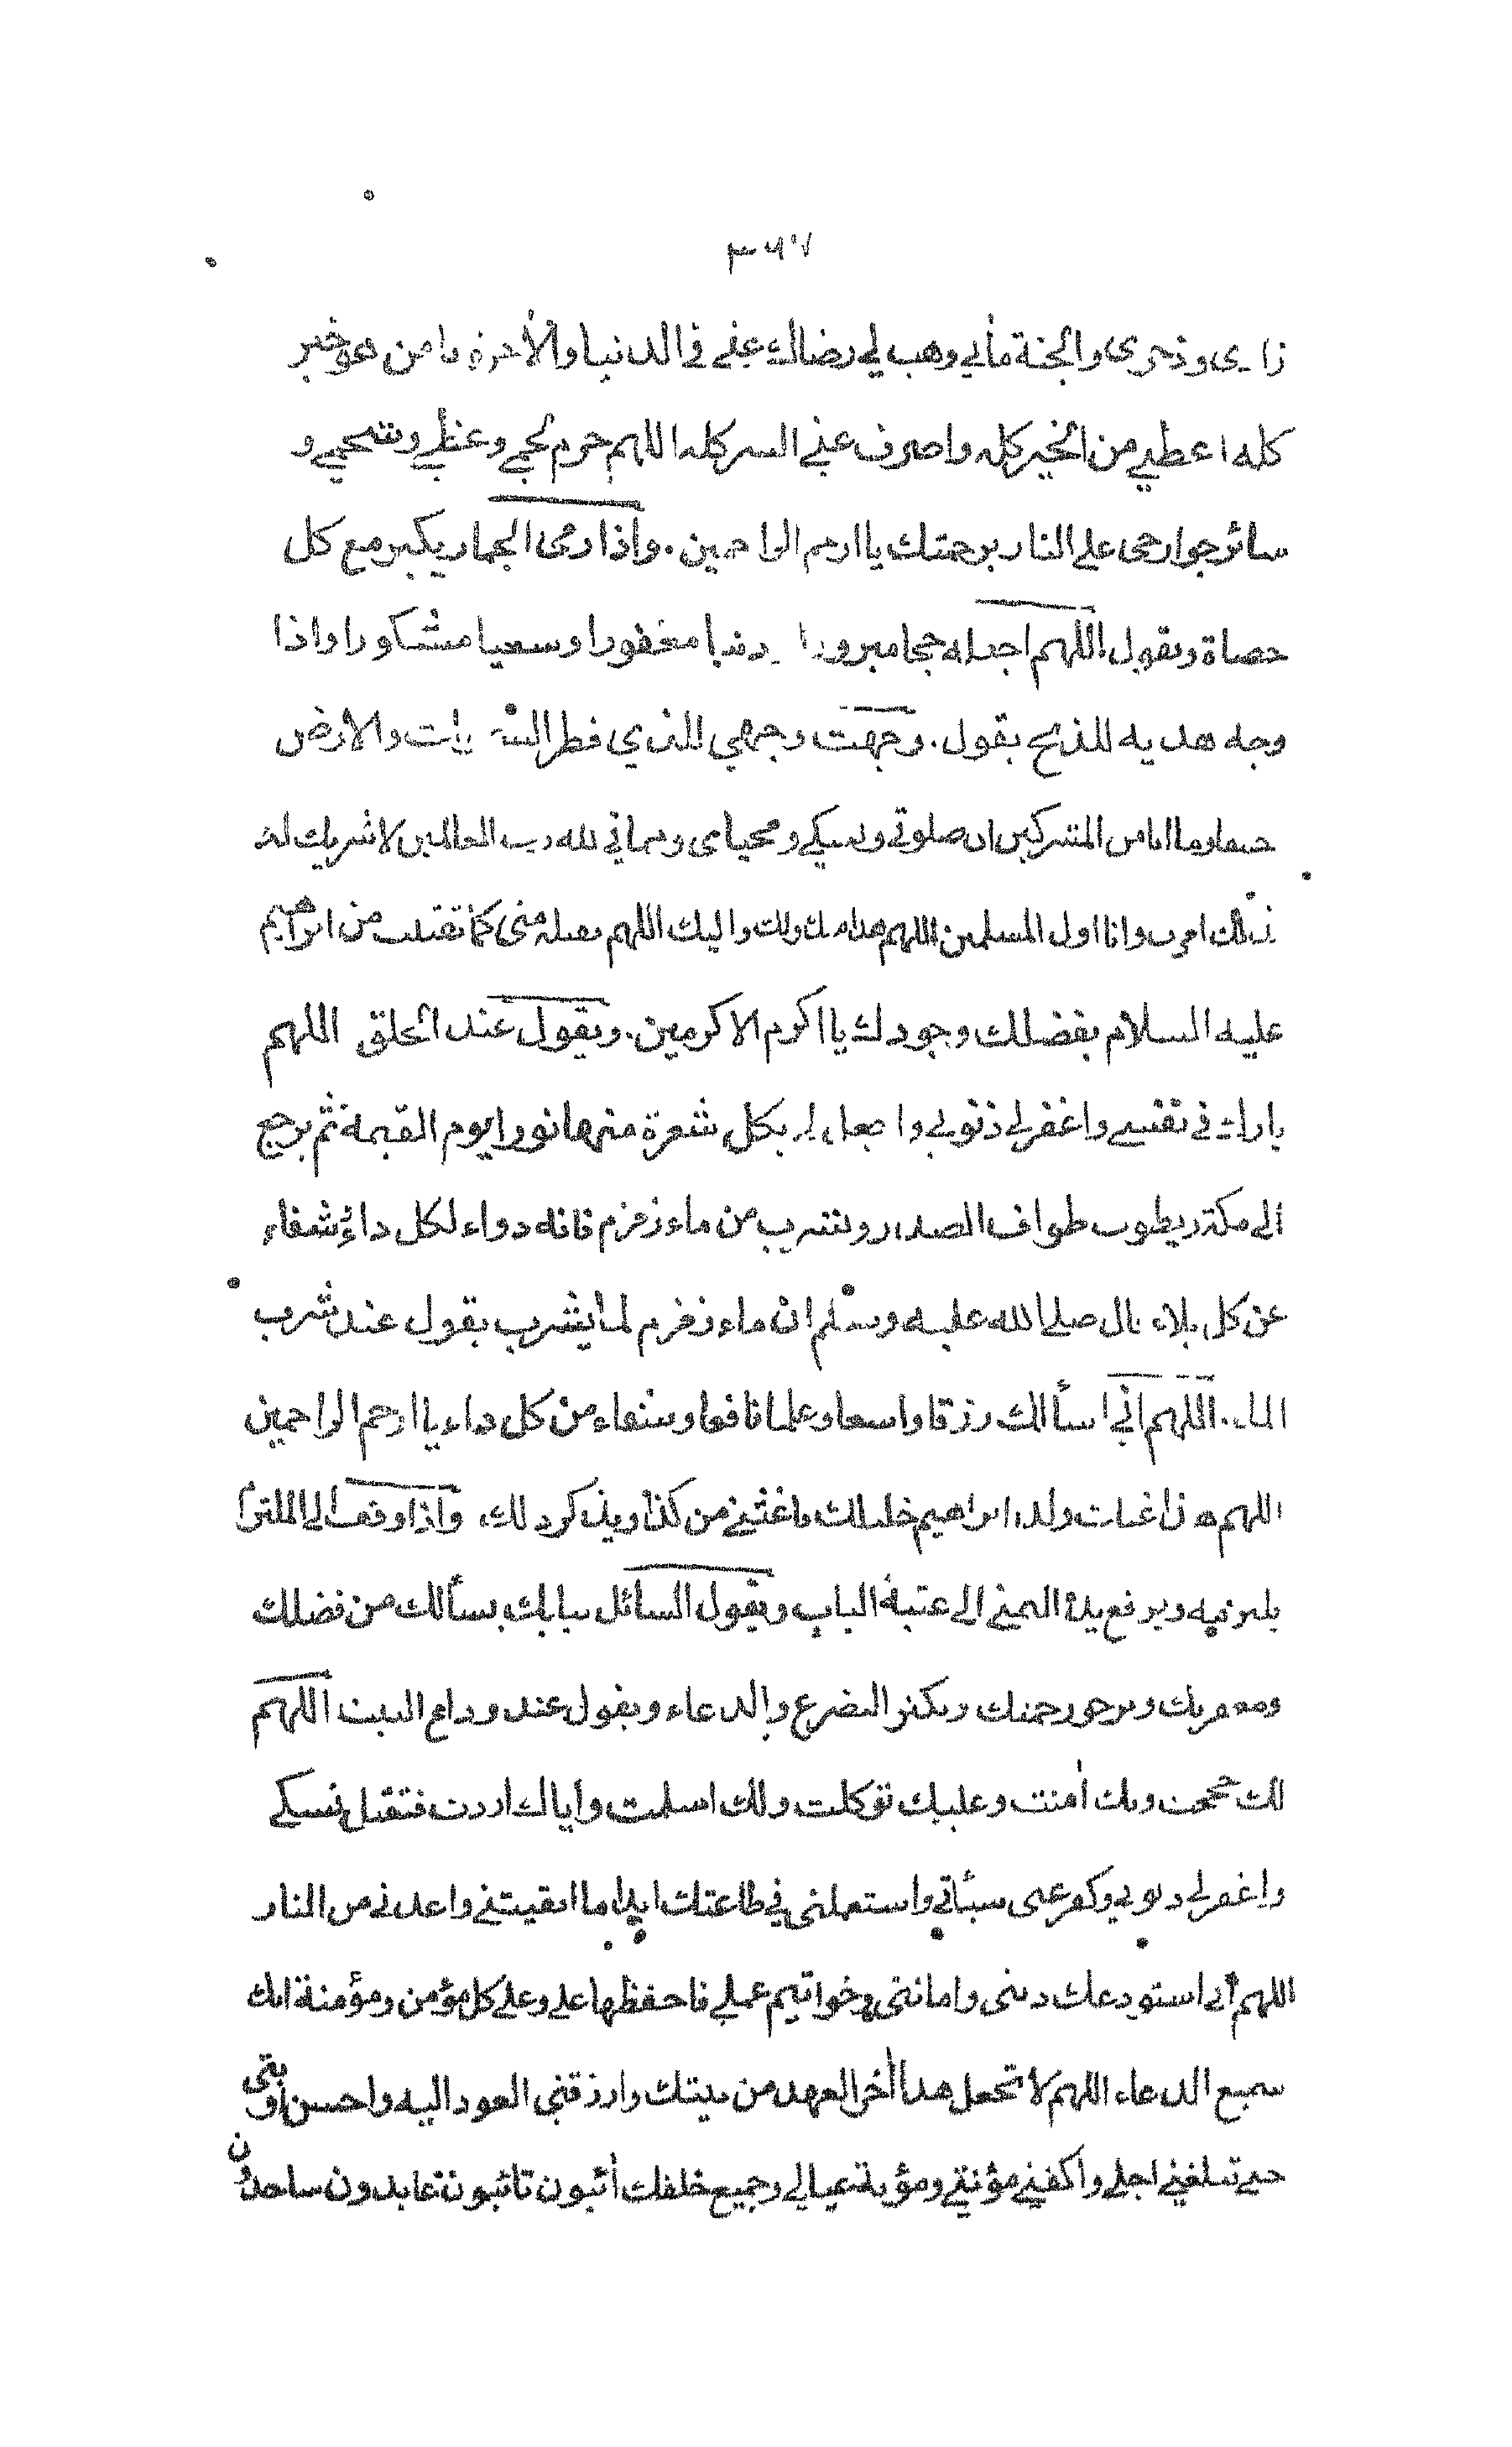 ٣٦٧
زادى وذخرى والجنة مأبي وهب لي رضاك عني في الدنيا والأخرة يا من هو خير
كله اعطني من الخير كله واصرف عني السر كله اللهم حرم لحمي وعظمي وشحمي و
سائر جوارحى على النار برحمتك يا ارحم الراحمين . واذا رمى الجمار يكبر مع كل
حصاة ويقول اللهم اجعله حجا مبرورا وذنبا مغفورا وسعيا مشكورا واذا
وجه هديه للذبح يقول . وجهت وجهي للذي فطر السموات والارض
حنيفا وما انا من المشركين ان صلوتي ونسكي ومحياى ومماتي لله رب العالمين لا شريك له
بذلك امرت وانا اول المسلمين اللهم هذا منك ولك واليك اللهم تقبله منى كما تقبلت من ابراهيم
عليه السلام بفضلك وجودك يا اكرم الاكرمين . ويقول عند الحلق اللهم
بارك في نفسي واغفر لي ذنوبي واجعل لي بكل شعرة منها نورا يوم القيمة ثم يرجع
الي مكة ويطوب طواف الصدر ويشرب من ماء زمزم فانه دواء لكل داء وشفاء
عن كل بلاء قال صلى الله عليه وسلم ان ماء زمزم لما يشرب يقول عند شرب
الماء . اللهم اني اسألك رزقا واسعا وعلما نافعا وشفاء من كل داء يا ارحم الراحمين
اللهم هذا غياث ولد ابراهيم خليلك فاغثني من كذا ويذكر ذلك . واذا وقف الي الملتزا
يلتزمه ويرفع يده اليمنى الي عتبة الباب ويقول السائل ببابك يسألك من فضلك
ومعفرتك ويرجو رحمتك ويكثر التضرع والدعاء ويقول عند وداع البيت اللهم
لك حججت وبك أمنت وعليك توكلت ولك اسلمت وأياك اردت فتقبل نسكي
واغفر لي ذنوبي وكفر عنى سيأتي واستعملنى في طاعتك ابدا ما ابقيتني واعذني من النار
اللهم أني استودعك دينى وامانتى وخواتيم عملي فاحفظها علي وعلي كل مؤمن ومؤمنة انك
سميع الدعاء اللهم لا تجعل هذا أخر العهد من بيتك وارزقنى العود اليه واحسن اوبتى
حتي تبلغني اجلي واكفني مؤنتي ومؤنة عيالي وجميع خلقك أئبون تائبون عابدون ساجدون